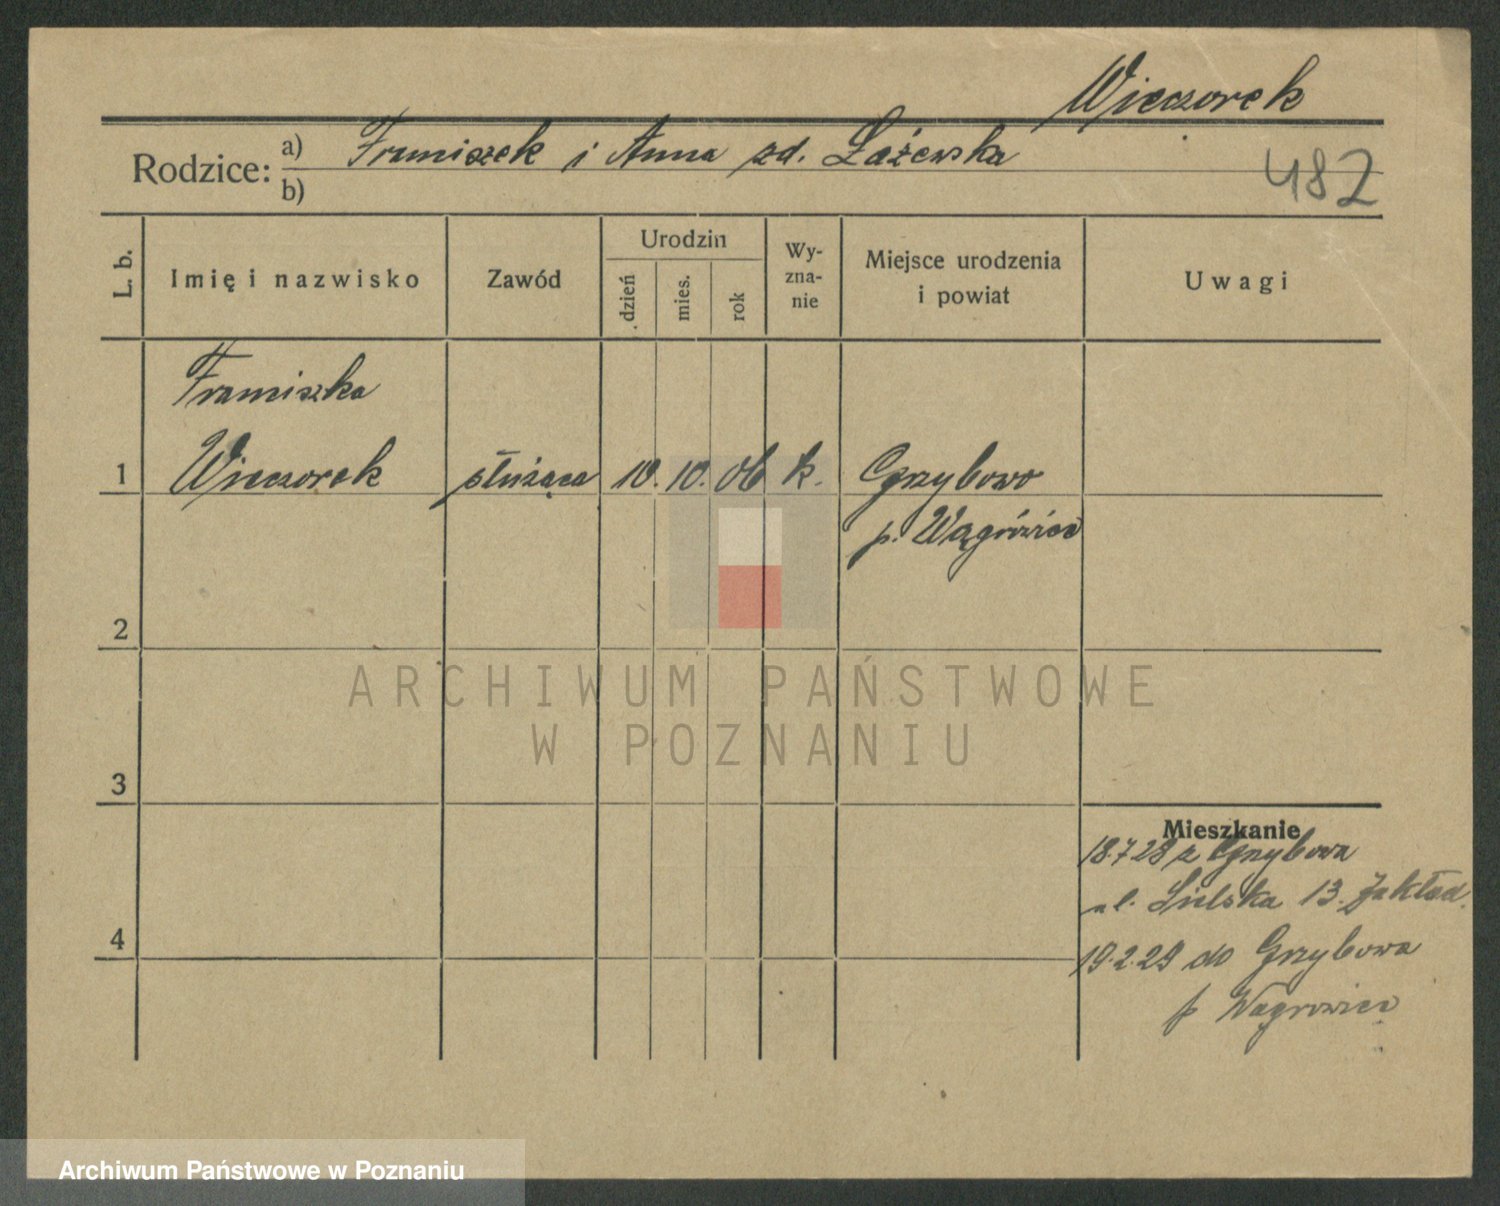 Wieczorek
Rodzice: a) Franciszek i Anna zd. Łażewska
b)
482
L. b.
Imię i nazwisko
Zawód
Urodzin
dzień
mies.
rok
Wy-
zna-
nie
Miejsce urodzenia
i powiat
Uwagi
Franciszka
1 Wieczorek służąca 10. 10. 06 k. Grzybowo
p. Wągrówiec
2
ARCHIWUM PAŃSTWOWE
W POZNANIU
3
Mieszkanie
18.7.28 z Grzybowa
ul. 13. Zakład.
4
19.2.29 do Grzybowa
p Wągrowiec
Archiwum Państwowe w Poznaniu